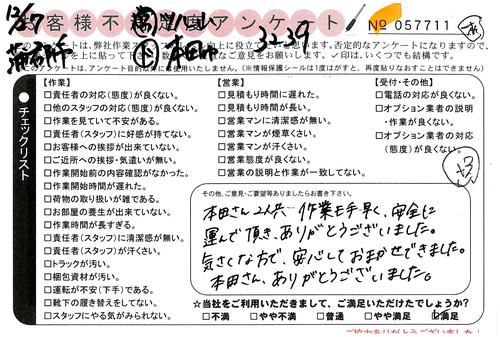 12/27
お客様不満足度アンケート
No 057711
3239
蒲郡市
㊤ 本田
【作業】
□責任者の対応(態度)が良くない。
□他のスタッフの対応(態度)が良くない。
□作業を見ていて不安がある。
□責任者(スタッフ)に好感が持てない。
□お客様への挨拶が出来ていない。
□ご近所への挨拶・気遣いが無い。
□作業開始前の内容確認がなかった。
□作業開始時間が遅れた。
□荷物の取り扱いが雑である。
□お部屋の養生が出来ていない。
□作業時間が長すぎる。
□責任者(スタッフ)に清潔感が無い。
□責任者(スタッフ)が汗くさい。
□トラックが汚い。
□梱包資材が汚い。
□運転が不安(下手)である。
□靴下の履き替えをしてない。
□スタッフにやる気がみられない。
【営業】
□見積もり時間に遅れた。
□見積もり時間が長い。
□営業マンに清潔感が無い。
□営業マンが煙草くさい。
□営業マンが汗くさい。
□営業態度が良くない。
□営業の説明と作業が一致してない。
【受付・その他】
□電話の対応が良くない。
□オプション業者の説明
・作業が良くない。
□オプション業者の対応
(態度)が良くない。
●チェックリスト
その他、ご意見・ご要望等ありましたらお書き下さい。
本田さん2人共 作業も手早く、安全に
運んで頂き、ありがとうございました。
気さくな方で、安心しておまかせできました。
本田さん、ありがとうございました。
☆当社をご利用いただきまして、ご満足いただけたでしょうか?
□不満 □やや不満 □普通 □やや満足 ☑満足
ご協力ありがとうございました!